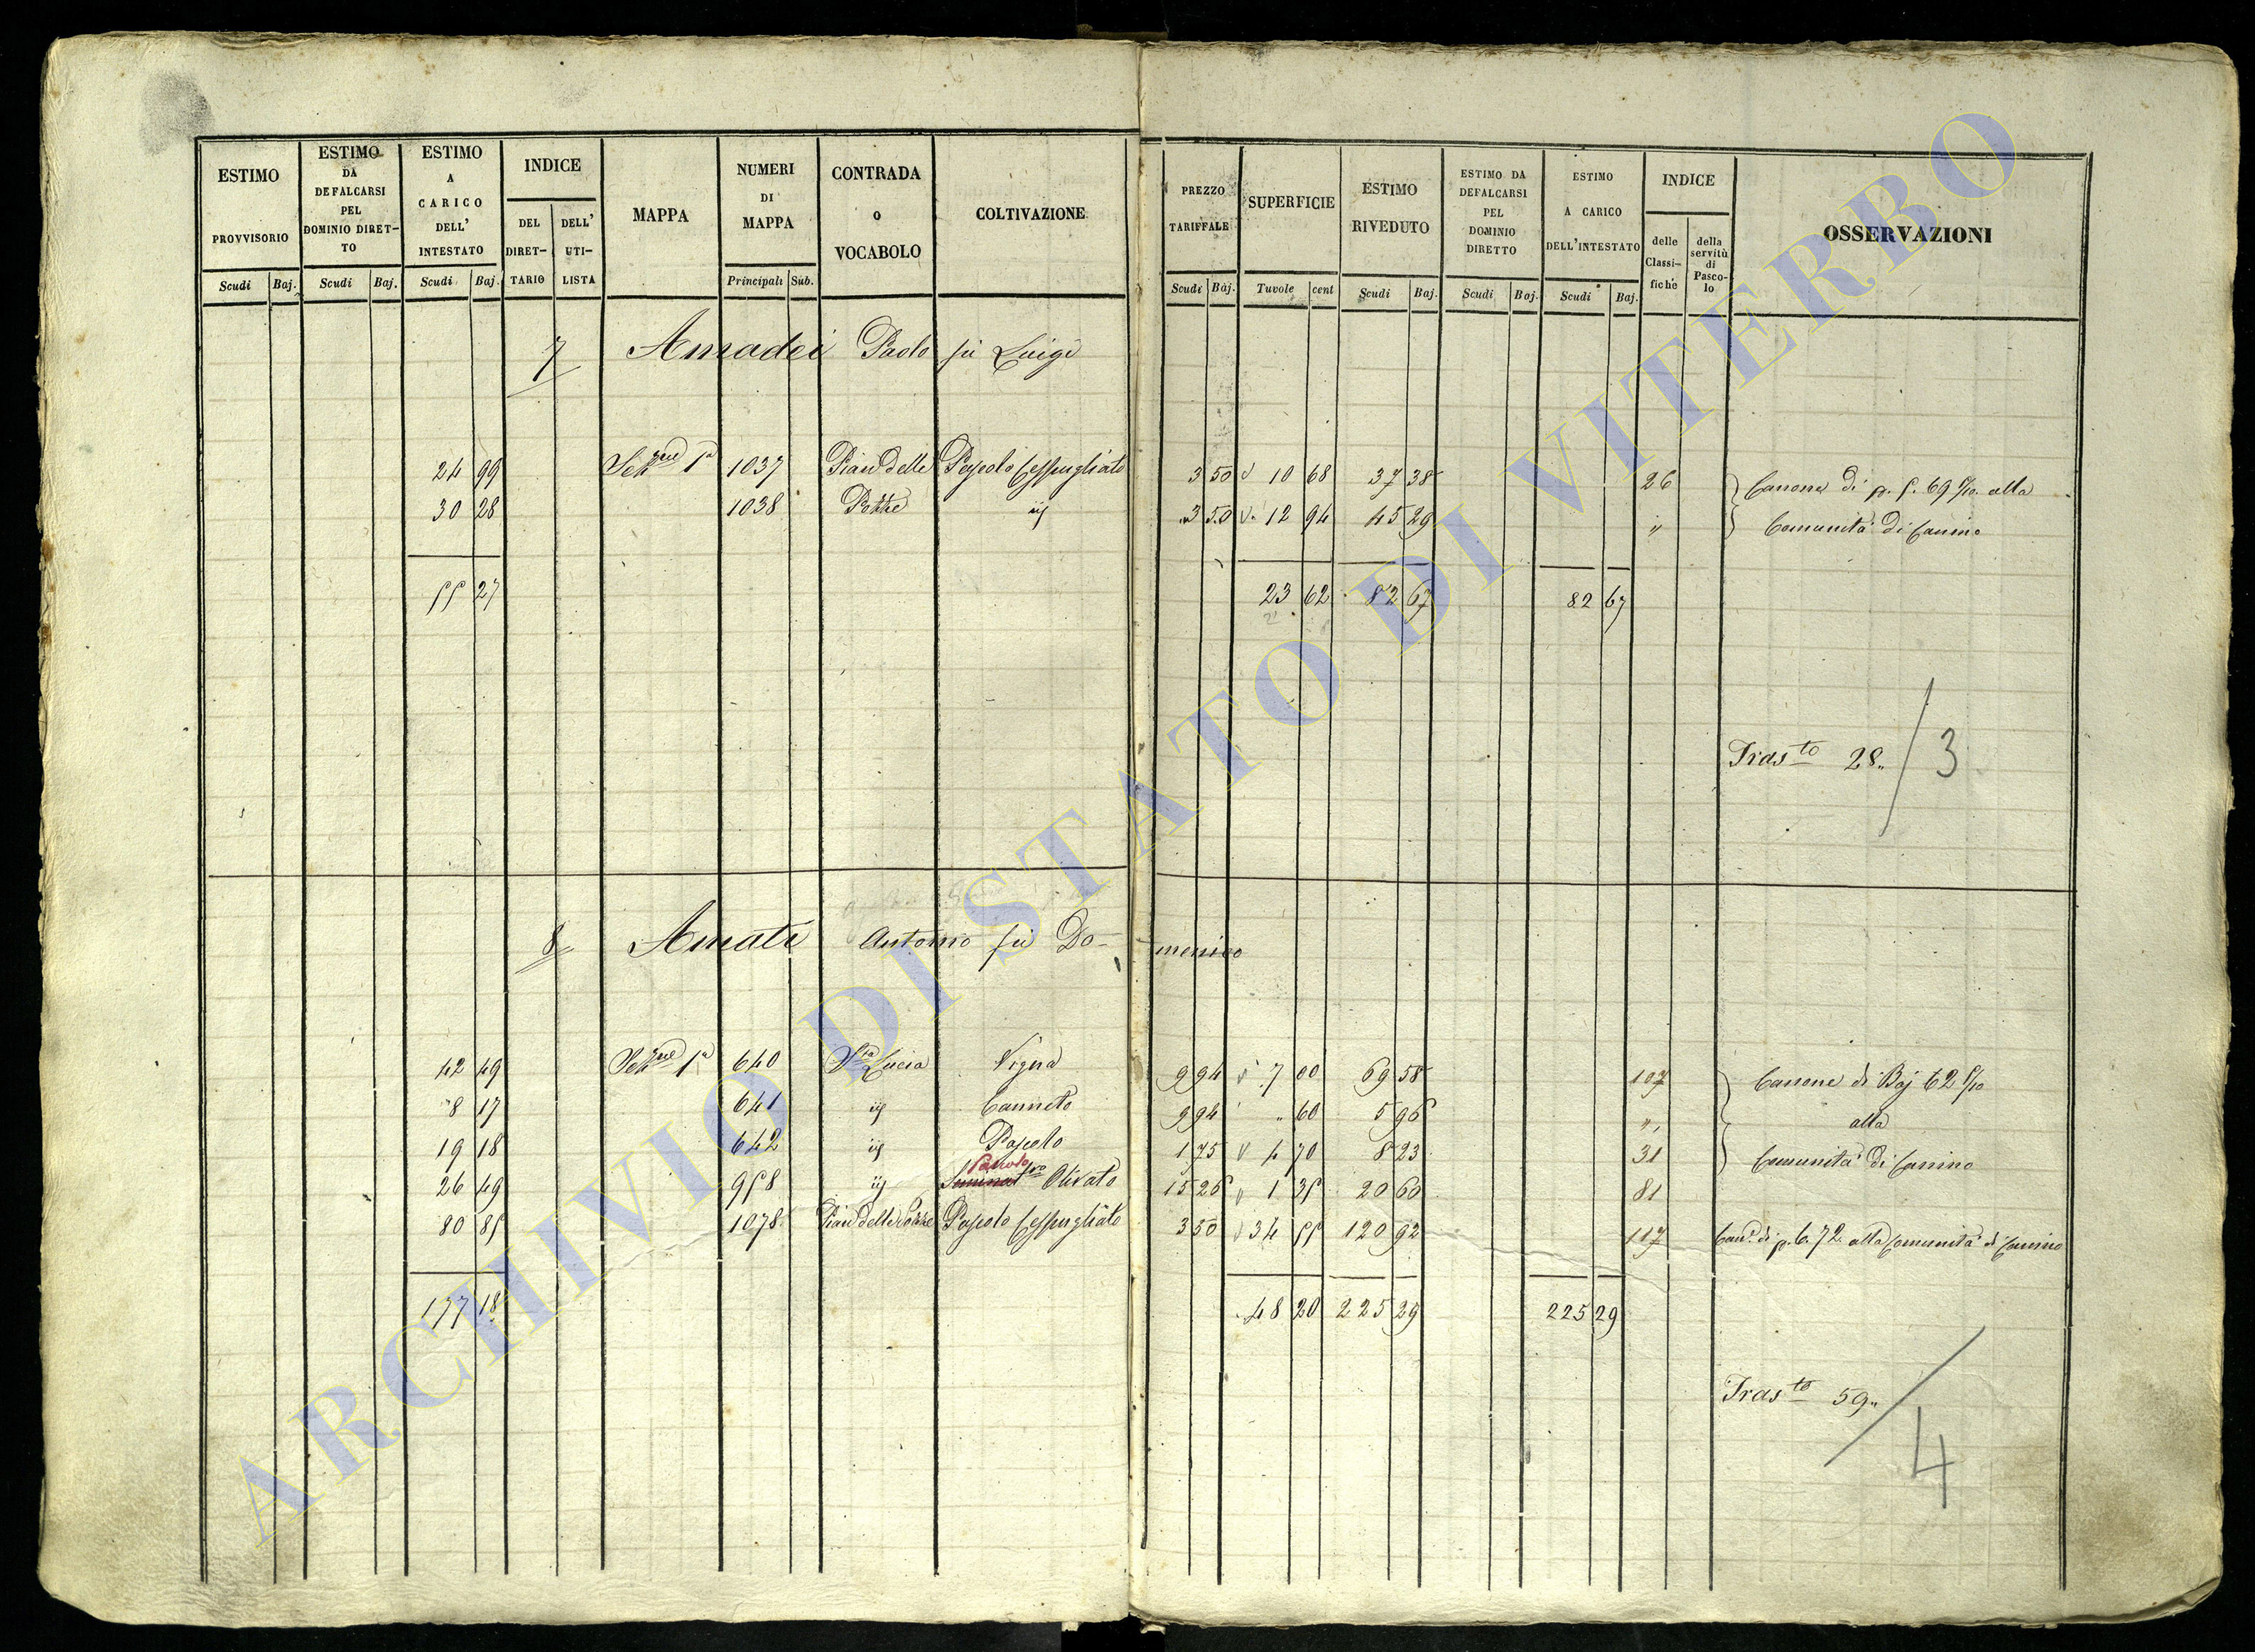 ESTIMO PROVVISORIO
ESTIMO DA DEFALCARSI PEL DOMINIO DIRET-TO
ESTIMO A CARICO DELL' INTESTATO
INDICE
DEL DIRET-TARIO
DELL' UTI-LISTA
MAPPA
NUMERI DI MAPPA
CONTRADA O VOCABOLO
COLTIVAZIONE
PREZZO TARIFFALE
SUPERFICIE
ESTIMO RIVEDUTO
ESTIMO DA DEFALCARSI PEL DOMINIO DIRETTO
ESTIMO A CARICO DELL'INTESTATO
INDICE
delle Classi-fiche
della servitù di Pasco-lo
OSSERVAZIONI
Scudi Baj. Scudi Baj. Scudi Baj. Principali Sub. Scudi Baj. Tavole cent Scudi Baj. Scudi Baj. Scudi Baj.
7 Amadei Paolo fù Luigi
24 99 Sez.ne 1a 1037 Pian delle Pascolo Cespugliato 3 50 v 10 68 37 38 26 Canone di p. f. 69 5/10 alla
30 28 1038 Pozze ij 3 50 v 12 94 45 29 " Comunità di Canino
55 27 23 62 82 67 82 67
Tras.to 28" / 3
8 Amati Antonio fù Do-menico
42 49 Sez.ne 1a 640 S.ta Lucia Vigna 9 94 v 7 00 69 58 107 Canone di Baj 62 5/10
8 17 641 ij Canneto 9 94 " 60 5 96 " alla
19 18 642 ij Pascolo 1 75 v 4 70 8 23 31 Comunità di Canino
Pascolo
26 49 958 ij Olivato 15 26 v 1 35 20 60 81
80 85 1078 Pian delle Pozze Pascolo Cespugliato 3 50 v 34 55 120 92 117 Can.e di p. 6.72 alla Comunità di Canino
177 18 48 20 225 29 225 29
Tras.to 59" / 4
ARCHIVIO DI STATO DI VITERBO